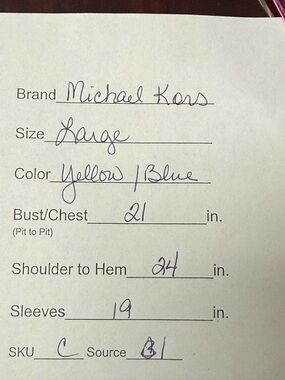 Brand Michael Kors
Size Large
Color Yellow / Blue
Bust/Chest 21 in.
(Pit to Pit)
Shoulder to Hem 24 in.
Sleeves 19 in.
SKU C Source B1